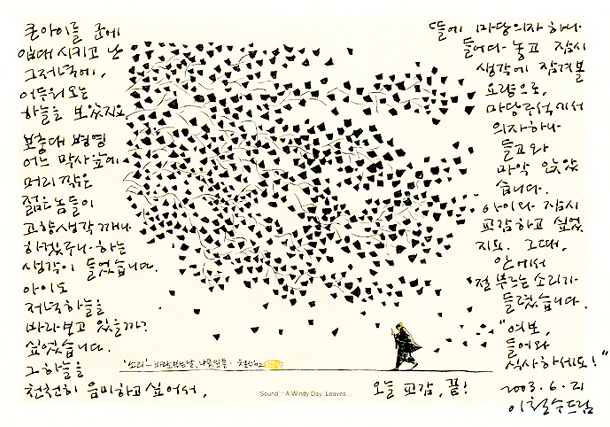 큰아이를 군에
입대 시키고 난
그저녁에,
어두워 오는
하늘을 보았지요
보충대 병영
어느 막사 앞에
머리 깎은
젊은놈들이
고향생각 깨나
하겠구나-하는
생각이 들었습니다.
아이도
저녁하늘을
바라보고 있을까?
싶었습니다.
그 하늘을
천천히 음미하고 싶어서,
뜰에 마당의자 하나
들어다 놓고 잠시
생각에 잠겨볼
요량으로,
마당구석에서
의자하나
들고와
마악 앉았
습니다.
아이와 잠시
교감하고 싶었
지요. 그때,
안에서
절 부르는 소리가
들렸습니다.
"여보,
들어와
식사하세요!"
오늘 교감, 끝!
2003. 6. 21
이철수드림
'소리'- 바람부는날, 나뭇잎들
'Sound' - A Windy Day, Leaves...